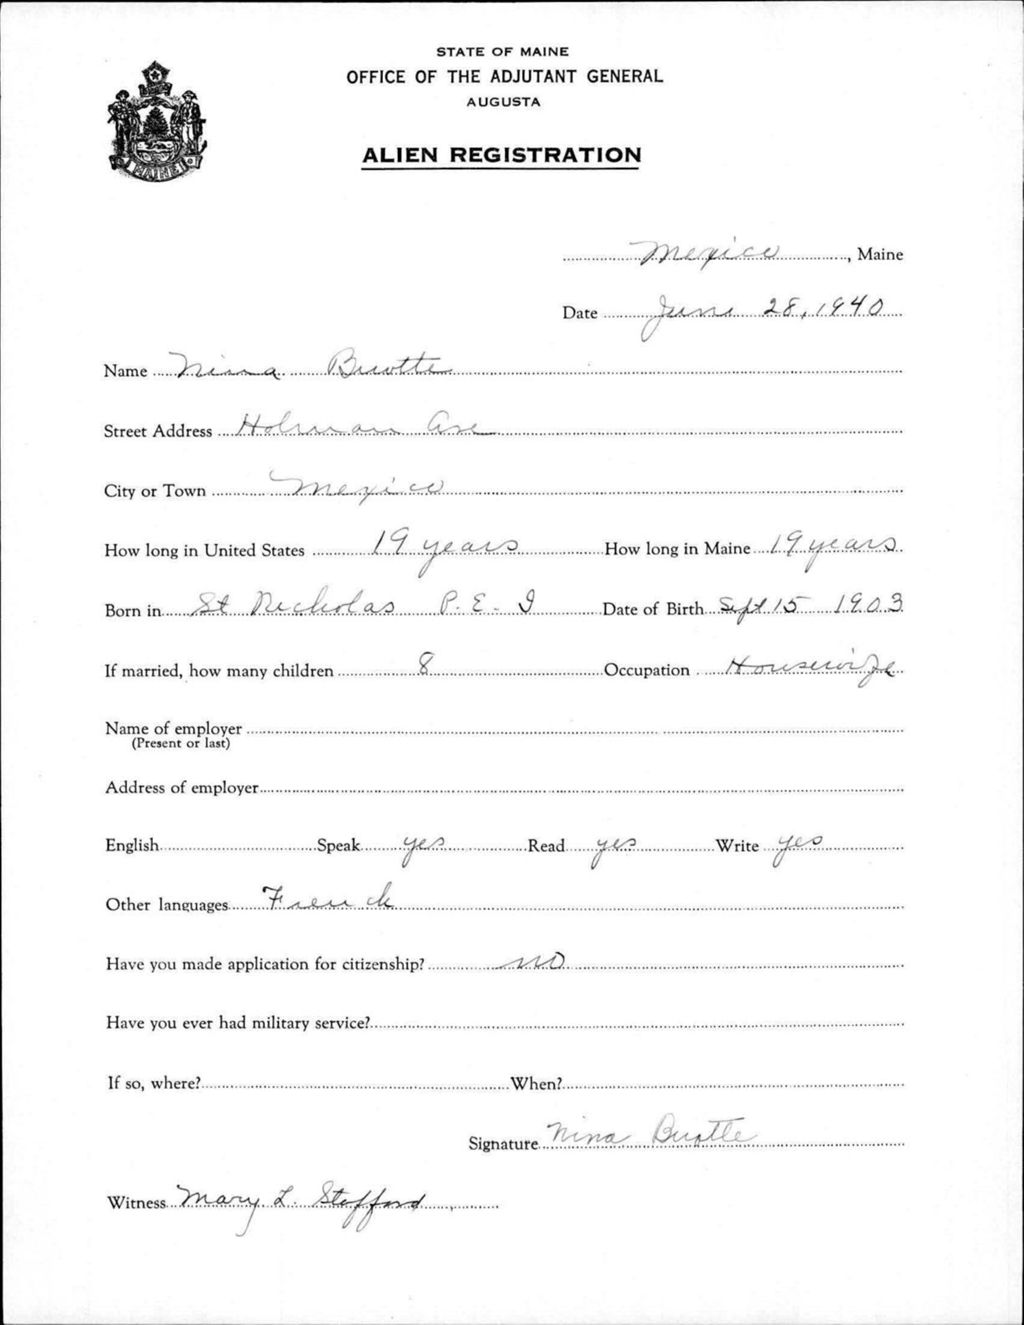 STATE OF MAINE
OFFICE OF THE ADJUTANT GENERAL
AUGUSTA
ALIEN REGISTRATION
MAINE
Mexico, Maine
Date June 28, 1940
Name Nina Buotte
Street Address Holman Ave
City or Town Mexico
How long in United States 19 years How long in Maine 19 years
Born in St Nicholas P. E. I Date of Birth Sept 15 1903
If married, how many children 8 Occupation Housewife
Name of employer
(Present or last)
Address of employer
English Speak yes Read yes Write yes
Other languages French
Have you made application for citizenship? no
Have you ever had military service?
If so, where? When?
Signature Nina Buotte
Witness Mary L. Stafford